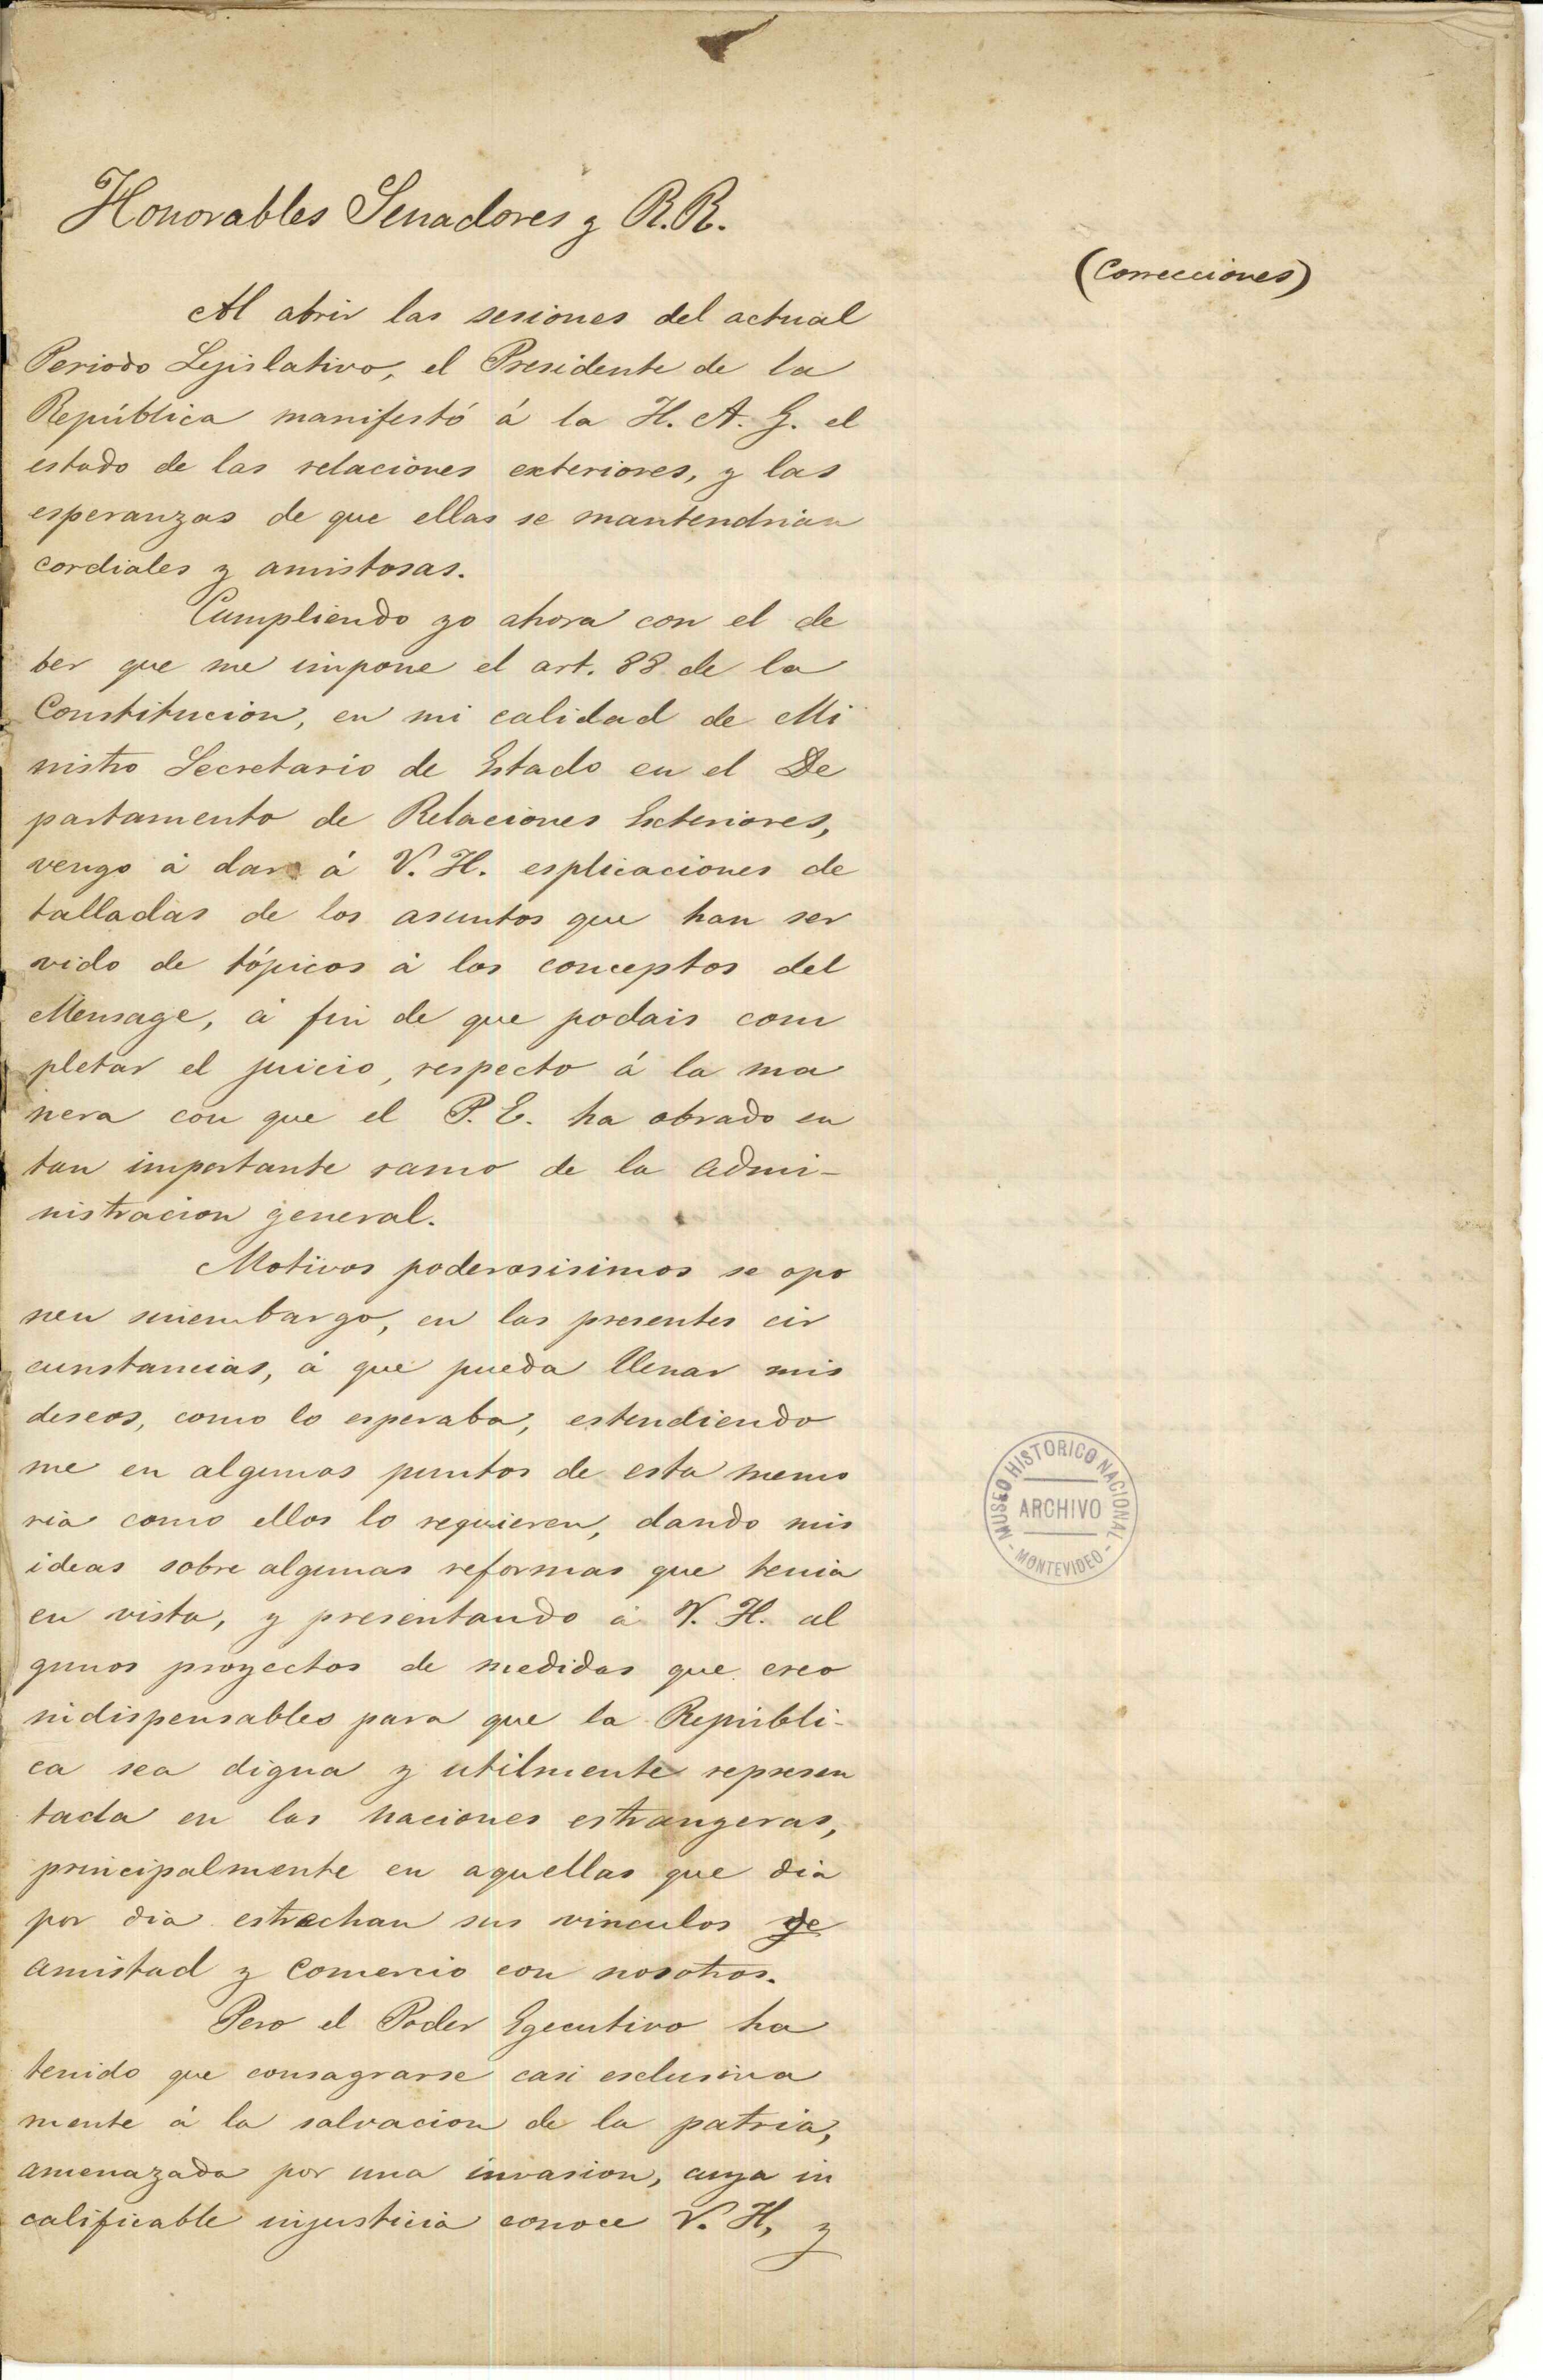 Honorables Senadores y R.R.
(Correcciones)
Al abrir las sesiones del actual
Periodo Lejislativo, el Presidente de la
República manifestó á la H. A. G. el
estado de las relaciones exteriores, y las
esperanzas de que ellas se mantendrian
cordiales y amistosas.
Cumpliendo yo ahora con el de
ber que me impone el art. 88 de la
Constitucion, en mi calidad de Mi
nistro Secretario de Estado en el De
partamento de Relaciones Exteriores,
vengo á dar á V. H. esplicaciones de
talladas de los asuntos que han ser
vido de tópicos á los conceptos del
Mensage, á fin de que podais com
pletar el juicio, respecto á la ma
nera con que el P. E. ha obrado en
tan importante ramo de la admi-
nistracion general.
Motivos poderosisimos se opo
nen sinembargo, en las presentes cir
cunstancias, á que pueda llenar mis
deseos, como lo esperaba, estendiendo
me en algunos puntos de esta memo
ria como ellos lo requieren, dando mis
ideas sobre algunas reformas que tenia
en vista, y presentando á V. H. al
gunos proyectos de medidas que creo
indispensables para que la Repúbli-
ca sea digna y utilmente represen
tada en las naciones estrangeras,
principalmente en aquellas que dia
por dia estrechan sus vinculos de
amistad y comercio con nosotros.
Pero el Poder Egecutivo ha
tenido que consagrarse casi esclusiva
mente á la salvacion de la patria,
amenazada por una invasion, cuya in
calificable injusticia conoce V. H, y
MUSEO HISTORICO NACIONAL
ARCHIVO
- MONTEVIDEO -